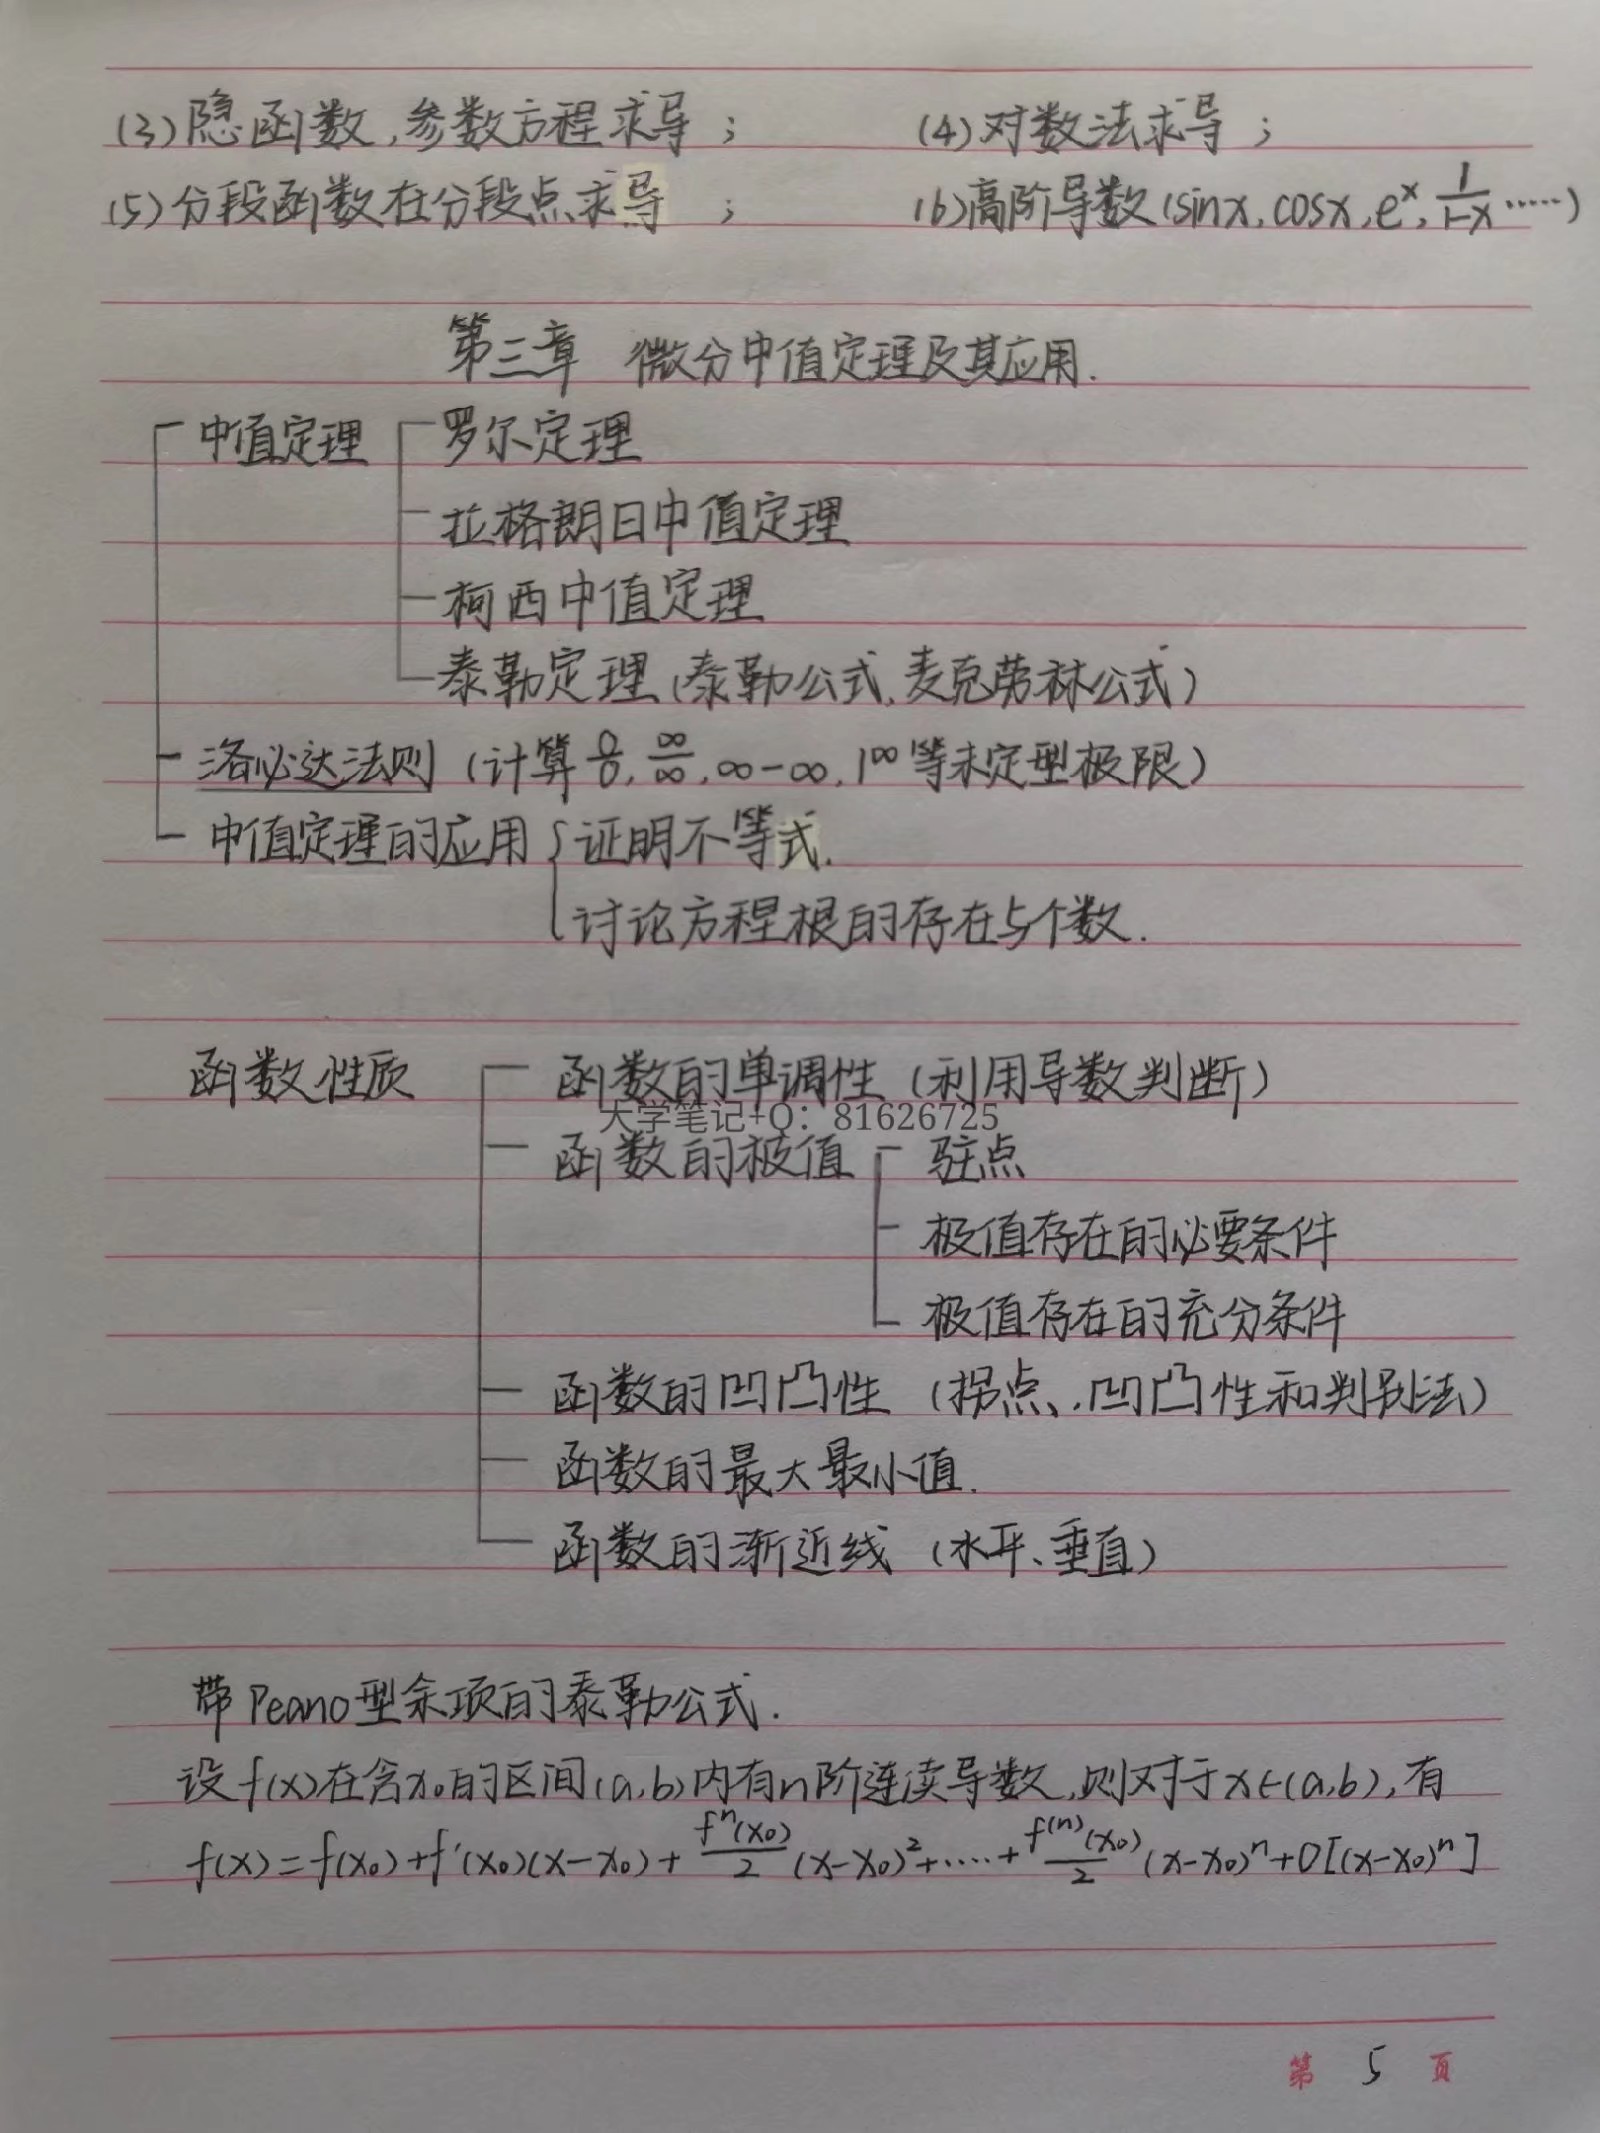 (3)隐函数,参数方程求导; (4)对数法求导;
(5)分段函数在分段点求导; (6)高阶导数(sinx,cosx,e^x,1/(1-x)……)
第三章 微分中值定理及其应用.
中值定理 罗尔定理
拉格朗日中值定理
柯西中值定理
泰勒定理(泰勒公式,麦克劳林公式)
洛必达法则(计算0/0,∞/∞,∞-∞,1^∞等未定型极限)
中值定理的应用{证明不等式.
讨论方程根的存在与个数.
函数性质 函数的单调性(利用导数判断)
大学笔记+Q:81626725
函数的极值 驻点
极值存在的必要条件
极值存在的充分条件
函数的凹凸性(拐点、凹凸性和判别法)
函数的最大最小值.
函数的渐近线(水平、垂直)
带Peano型余项的泰勒公式.
设f(x)在含x₀的区间(a,b)内有n阶连续导数,则对于x∈(a,b),有
f(x)=f(x₀)+f'(x₀)(x-x₀)+f^n(x₀)/2(x-x₀)²+……+f^(n)(x₀)/2(x-x₀)^n+0[(x-x₀)^n]
第 5 页